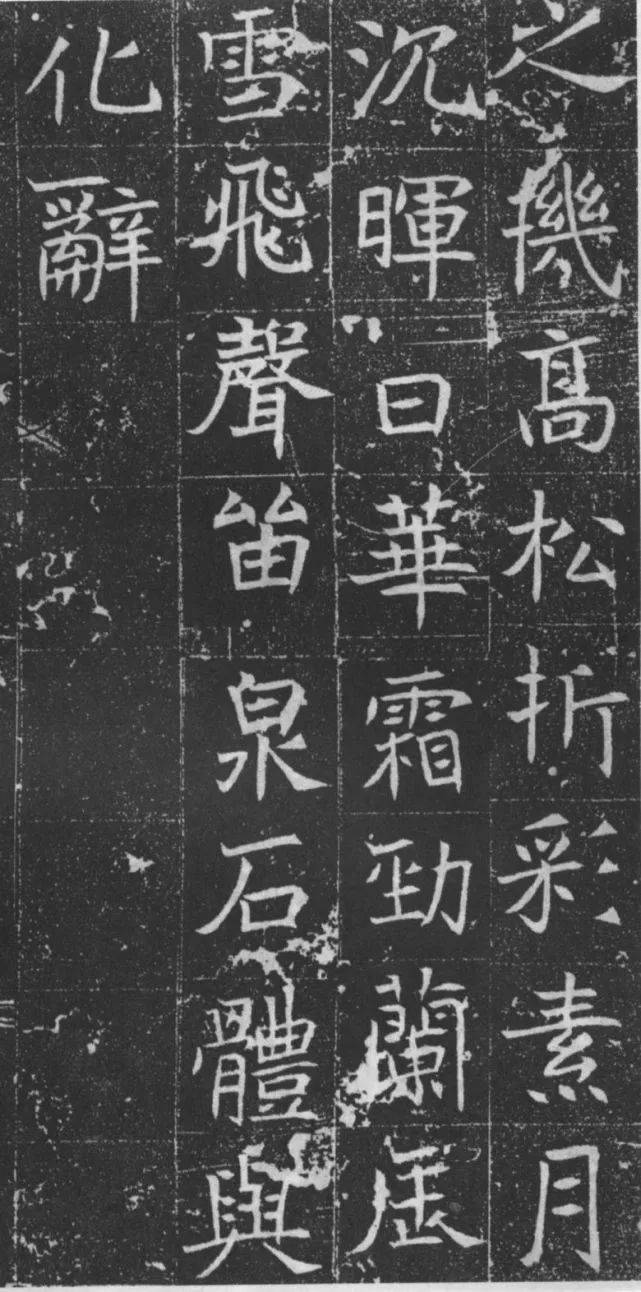 之機髙松折彩素月
沉暉曰華霜勁蘭
雪飛聲留泉石體與
化辭